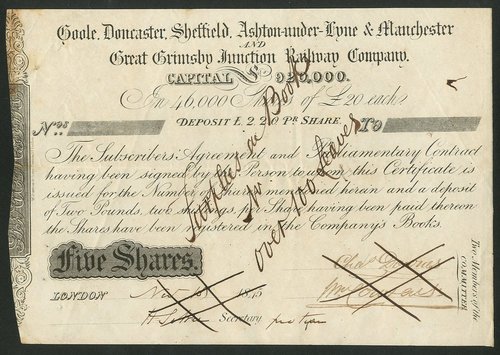 Goole, Doncaster, Sheffield, Ashton-under-Lyne & Manchester
AND
Great Grimsby Junction Railway Company.
CAPITAL £ 920,000.
In 46,000 of £20 each
DEPOSIT £ 2 2 0 PR SHARE.
Nos To
The Subscribers' Agreement and Parliamentary Contract
having been signed by the Person to whom this Certificate is
issued for the Number of Shares mentioned herein and a deposit
of Two Pounds, two shillings, per Share having been paid thereon
the Shares have been registered in the Company's Books.
Five Shares.
LONDON 1845
Secretary pro tem
Two Members of the
COMMITTEE
Books
over 100 Leaves